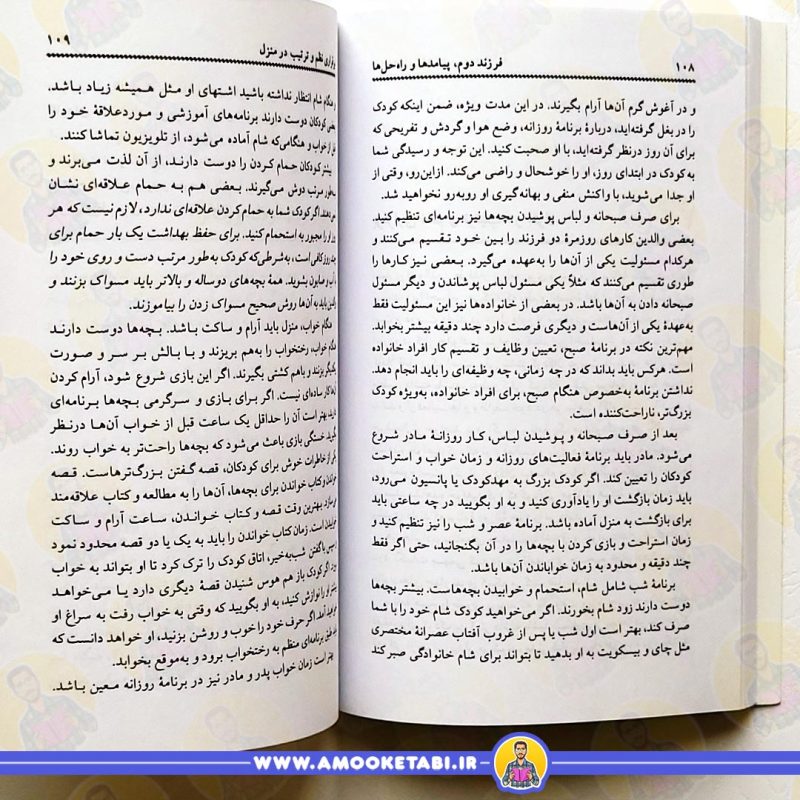 ۱۰۸
فرزند دوم، پیامدها و راه‌حل‌ها
و در آغوش گرم آن‌ها آرام بگیرند. در این مدت ویژه، ضمن اینکه کودک
را در بغل گرفته‌اید، دربارهٔ برنامهٔ روزانه، وضع هوا و گردش و تفریحی که
برای آن روز درنظر گرفته‌اید، با او صحبت کنید. این توجه و رسیدگی شما
به کودک در ابتدای روز، او را خوشحال و راضی می‌کند. ازاین‌رو، وقتی از
او جدا می‌شوید، با واکنش منفی و بهانه‌گیری او روبه‌رو نخواهید شد.
برای صرف صبحانه و لباس پوشیدن بچه‌ها نیز برنامه‌ای تنظیم کنید.
بعضی والدین کارهای روزمرهٔ دو فرزند را بین خود تقسیم می‌کنند و
هرکدام مسئولیت یکی از آن‌ها را به‌عهده می‌گیرد. بعضی نیز کارها را
طوری تقسیم می‌کنند که مثلاً یکی مسئول لباس پوشاندن و دیگر مسئول
صبحانه دادن به آن‌ها باشد. در بعضی از خانواده‌ها نیز این مسئولیت فقط
به‌عهدهٔ یکی از آن‌هاست و دیگری فرصت دارد چند دقیقه بیشتر بخوابد.
مهم‌ترین نکته در برنامهٔ صبح، تعیین وظایف و تقسیم کار افراد خانواده
است. هرکس باید بداند که در چه زمانی، چه وظیفه‌ای را باید انجام دهد.
نداشتن برنامه به‌خصوص هنگام صبح، برای افراد خانواده، به‌ویژه کودک
بزرگ‌تر، ناراحت‌کننده است.
بعد از صرف صبحانه و پوشیدن لباس، کار روزانهٔ مادر شروع
می‌شود. مادر باید برنامهٔ فعالیت‌های روزانه و زمان خواب و استراحت
کودکان را تعیین کند. اگر کودک بزرگ به مهدکودک یا پانسیون می‌رود،
باید زمان بازگشت او را یادآوری کنید و به او بگویید در چه ساعتی باید
برای بازگشت به منزل آماده باشد. برنامهٔ عصر و شب را نیز تنظیم کنید و
زمان استراحت و بازی کردن با بچه‌ها را در آن بگنجانید، حتی اگر فقط
چند دقیقه و محدود به زمان خواباندن آن‌ها باشد.
برنامهٔ شب شامل شام، استحمام و خوابیدن بچه‌هاست. بیشتر بچه‌ها
دوست دارند زود شام بخورند. اگر می‌خواهید کودک شام خود را با شما
صرف کند، بهتر است اول شب یا پس از غروب آفتاب عصرانهٔ مختصری
مثل چای و بیسکویت به او بدهید تا بتواند برای شام خانوادگی صبر کند
نظم و ترتیب در منزل
۱۰۹
شام انتظار نداشته باشید اشتهای او مثل همیشه زیاد باشد.
کودکان دوست دارند برنامه‌های آموزشی و موردعلاقهٔ خود را
از خواب و هنگامی‌که شام آماده می‌شود، از تلویزیون تماشا کنند.
بیشتر کودکان حمام کردن را دوست دارند، از آن لذت می‌برند و
مرتب دوش می‌گیرند. بعضی هم به حمام علاقه‌ای نشان
اگر کودک شما به حمام کردن علاقه‌ای ندارد، لازم نیست که هر
او را مجبور به استحمام کنید. برای حفظ بهداشت یک بار حمام برای
روز کافی است، به‌شرطی‌که کودک به‌طور مرتب دست و روی خود را
آب و صابون بشوید. همهٔ بچه‌های دوساله و بالاتر باید مسواک بزنند و
باید به آن‌ها روش صحیح مسواک زدن را بیاموزند.
خواب، منزل باید آرام و ساکت باشد. بچه‌ها دوست دارند
خواب، رختخواب را به‌هم بریزند و با بالش بر سر و صورت
بزنند و باهم کشتی بگیرند. اگر این بازی شروع شود، آرام کردن
کار ساده‌ای نیست. اگر برای بازی و سرگرمی بچه‌ها برنامه‌ای
بهتر است آن را حداقل یک ساعت قبل از خواب آن‌ها درنظر
خستگی بازی باعث می‌شود که بچه‌ها راحت‌تر به خواب روند.
از خاطرات خوش برای کودکان، قصه گفتن بزرگ‌ترهاست. قصه
و کتاب خواندن برای بچه‌ها، آن‌ها را به مطالعه و کتاب علاقه‌مند
بهترین وقت قصه و کتاب خواندن، ساعت آرام و ساکت
است. زمان کتاب خواندن را باید به یک یا دو قصه محدود نمود
باگفتن شب‌به‌خیر، اتاق کودک را ترک کرد تا او بتواند به خواب
اگر کودک باز هم هوس شنیدن قصهٔ دیگری دارد یا می‌خواهد
او را نوازش کنید، به او بگویید که وقتی به خواب رفت به سراغ او
آمد. اگر حرف خود را خوب و روشن بزنید، او خواهد دانست که
طبق برنامه‌ای منظم به رختخواب برود و به‌موقع بخوابد.
بهتر است زمان خواب پدر و مادر نیز در برنامهٔ روزانه معین باشد.
WWW.AMOOKETABI.IR